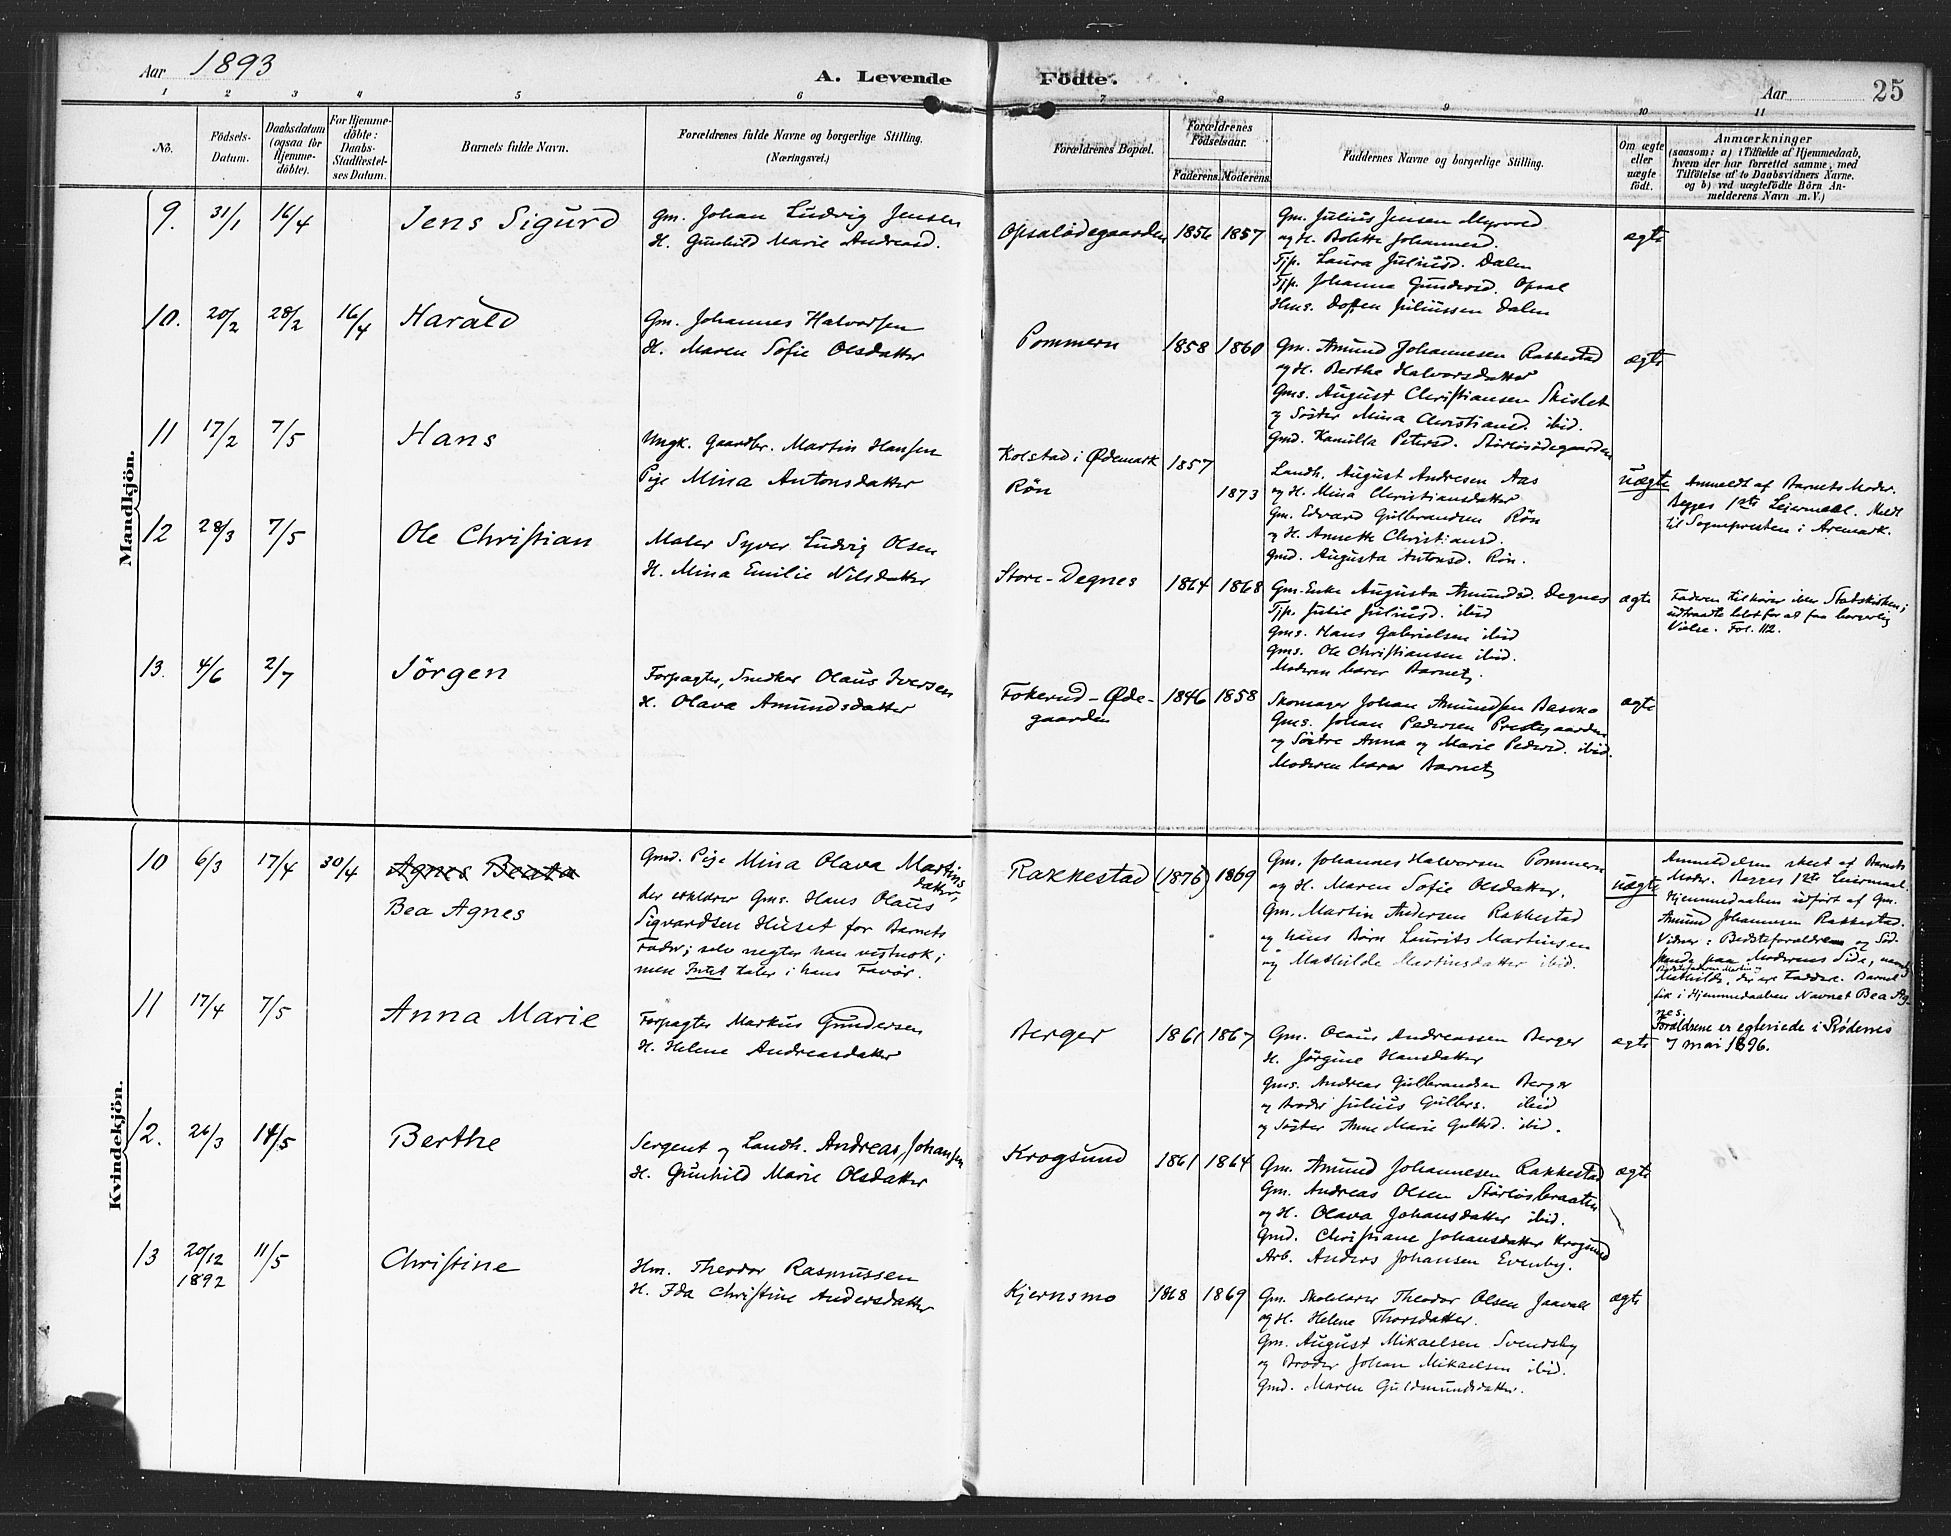 Aar 1893
A. Levende Födte.
Aar 25
1 2 3 4 5 6 7 8 9 10 11
No.
Födsels-Datum.
Daabsdatum (ogsaa för Hjemme-döbte).
For Hjemme-döbte: Daabs-Stadfæstel-ses Datum.
Barnets fulde Navn.
Forældrenes fulde Navne og borgerlige Stilling. (Næringsvei.)
Forældrenes Bopæl.
Forældrenes Födselsaar.
Faderens. Moderens.
Faddernes Navne og borgerlige Stilling.
Om ægte eller uægte födt.
Anmærkninger
(saasom: a) i Tilfælde af Hjemmedaab,
hvem der har forrettet samme, med
Tilföielse af to Daabsvidners Navne.
og b) ved uægtefödte Börn An-
melderens Navn m. V.)
Mandkjön.
9. 31/1 16/4 Jens Sigurd
Gm. Johan Ludvig Jensen
H. Gunhild Marie Andreasd.
Opsalødegaarden 1856 1857
Gm. Julius Jensen Myrvold
og H. Bolette Johannesd.
Tjp. Laura Juliusd. Dalen
Tjp. Johanna Gundersd. Opsal
Hms. Juliussen Dalen
ægte
10. 20/2 28/2 16/4 Harald
Gm. Johannes Halvorsen
H. Maren Sofie Olsdatter
Pommern 1858 1860
Gm. Amund Johannesen Rakkestad
og H. Berthe Halvorsdatter
Gms. August Christiansen Skislet
og Søster Mina Christiansd. ibid.
Gmd. Kamilla Petersd. Størlosødegaarden
ægte
11 17/2 7/5 Hans
Ungk. Gaardbr. Martin Hansen
Pige Mina Antonsdatter
Kolstad i Ødemark 1857
Røn 1873
Landh. August Andresen Aas
og H. Mina Christiansdatter
Gm. Edvard Gulbrandsen Røn
og H. Annette Christiansd.
Gmd. Augusta Antonsd. Røn.
uægte
Anmeldt af Barnets Moder.
Begges 1ste Leiermaal. Meldt
til Sognepresten i Aremark.
12 28/3 7/5 Ole Christian
Maler Syver Ludvig Olsen
H. Mina Emilie Nilsdatter
Store-Degnes 1864 1868
Gm. Enke Augusta Amundsd. Degnes
Tjp. Julie Juliusd. ibid
Gms. Hans Gabrielsen ibid
Gms. Ole Christiansen ibid.
Moderen barer Barnet.
ægte
Faderen tilhører ikke Statskirken;
udtraadte blot for at faa borgerlig
Vielse. Fol. 112.
13. 4/6 2/7 Jörgen
Forpagter, Snedker Olaus Iversen
H. Olava Amundsdatter
Fokerud-Øde-
gaarden
1846 1858
Skomager Johan Amundsen Basmo
Gms. Johan Pedersen Prestegaarden
og Søstre Anna og Marie Pedersd. ibid.
Moderen barer Barnet
ægte
Kvindekjön.
10 6/3 17/4 30/4 Agnes Beata
Bea Agnes
Gmd. Pige Mina Olava Martins
datter,
der erklærer Gms. Hans Olaus
Sigvardsen Huset for Barnets
Fader; selv negter han vistnok;
men Intet taler i hans Favør.
Rakkestad (1876) 1869
Gm. Johannes Halvorsen Pommern
og H. Maren Sofie Olsdatter.
Gm. Martin Andersen Rakkestad
og hans Børn Laurits Martinsen
og Mathilde Martinsdatter ibid.
uægte
Anmeldelsen skeet af Barnets
Moder. Begges 1ste Leiermaal.
Hjemmedaaben udført af Gm.
Amund Johannesen Rakkestad.
Vidner: Bedsteforældrene og Sød-
skende paa Moderens Side,
Mathilde, der ere Faddere. Barnet
fik i Hjemmedaaben Navnet Bea Ag-
nes.
Forældrene er egteviede i Rødenes
7 mai 1896.
11 17/4 7/5 Anna Marie
Forpagter Markus Gundersen
H. Helene Andreasdatter
Berger 1861 1867
Gm. Olaus Andreassen Berger
H. Jörgine Hansdatter
Gms. Andreas Gulbrandsen Berger
og Broder Julius Gulbrs. ibid
og Søster Anne Marie Gulbrd. ibid.
ægte
12. 26/3 14/5 Berthe
Sergent og Landh. Andreas Johansen
H. Gunhild Marie Olsdatter
Krogsund 1861 1864
Gm. Amund Johannesen Rakkestad
Gm. Andreas Olsen Størlosbraaten
og H. Olava Johansdatter ibid.
Gmd. Christiane Johansdatter Krogsund
Arb. Anders Johansen Evenby.
ægte
13 20/12 1892 11/5 Christine
Hm. Theodor Rasmussen
H. Ida Christine Andersdatter
Kjernsmo 1868 1869
Gm. Skolelærer Theodor Olsen Jaavall
og H. Helene Thorsdatter.
Gm. August Mikaelsen Svendsby
og Broder Johan Mikaelsen ibid.
Gmd. Maren Guldmundsdatter.
ægte